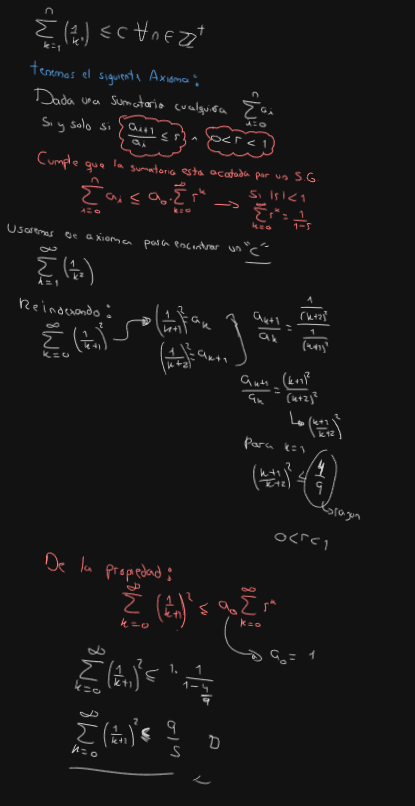 ∑_{k=1}^{n} (1/k²) ≤ C ∀ n ∈ ℤ⁺
tenemos el siguiente Axioma:
Dada una sumatorio cualquiera ∑_{i=0}^{n} aᵢ
Si y solo si aᵢ₊₁/aᵢ ≤ r ^ 0<r<1
Cumple que la sumatoria esta acotada por un S.G
∑_{i=0}^{n} aᵢ ≤ a₀ · ∑_{k=0}^{∞} rᵏ → Si |r| < 1
∑_{k=0}^{∞} rᵏ = 1/(1-r)
Usaremos ese axioma para encontrar un "C"
∑_{i=1}^{∞} (1/k²)
Reindexando:
∑_{k=0}^{∞} (1/(k+1))² → (1/(k+1))² = aₖ
(1/(k+2))² = aₖ₊₁
aₖ₊₁/aₖ = (1/(k+2)²)/(1/(k+1)²)
aₖ₊₁/aₖ = (k+1)²/(k+2)²
↳ ((k+1)/(k+2))²
Para k=1
((k+1)/(k+2))² ≤ 4/9
razon
0<r<1
De la propiedad:
∑_{k=0}^{∞} (1/(k+1))² ≤ a₀ ∑_{k=0}^{∞} rᵏ
→ a₀ = 1
∑_{k=0}^{∞} (1/(k+1))² ≤ 1 · 1/(1-4/9)
∑_{k=0}^{∞} (1/(k+1))² ≤ 9/5 D